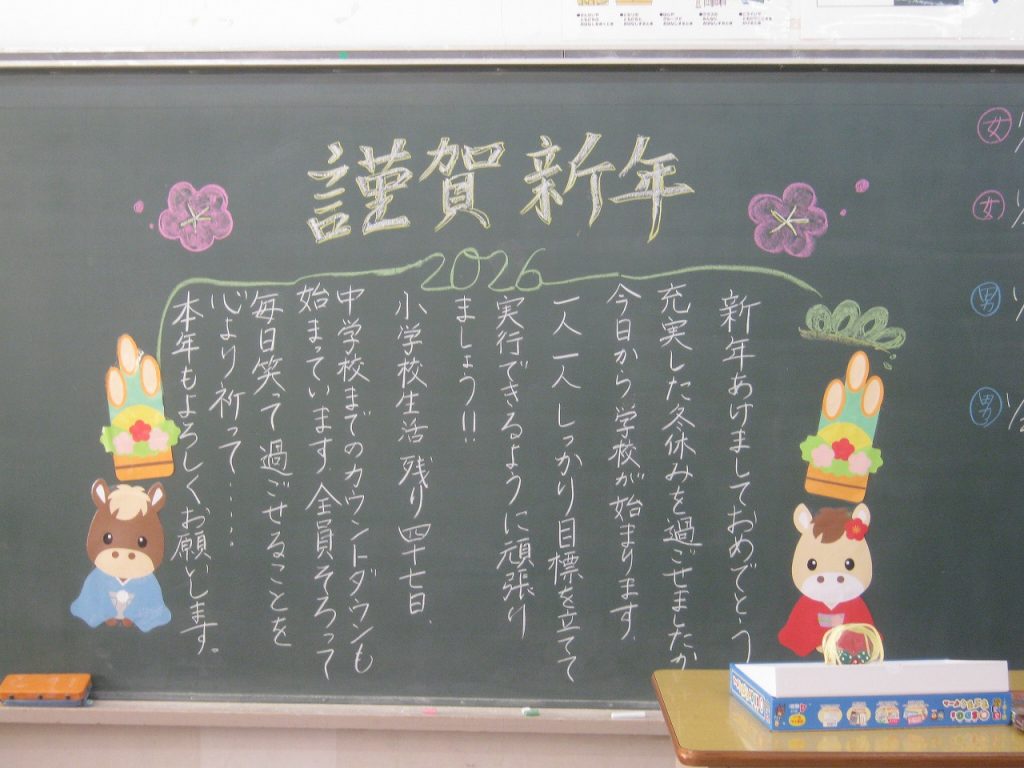 謹賀新年
2026
新年あけましておめでとう
充実した冬休みを過ごせましたか
今日から学校が始まります。
一人一人しっかり目標を立てて
実行できるように頑張り
ましょう!!
小学校生活残り四十七日、
中学校までのカウントダウンも
始まっています。全員そろって
毎日笑って過ごせることを
心より祈って……
本年もよろしくお願いします。
女
女
男
男